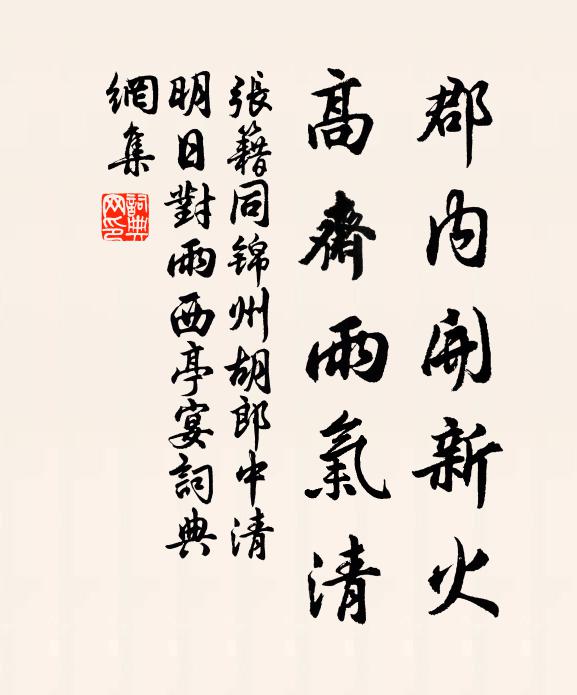 郡内開新火
高齋雨氣清
張籍同锦州胡郎中清
明日對雨西亭宴詞典
網集
詞典
网印